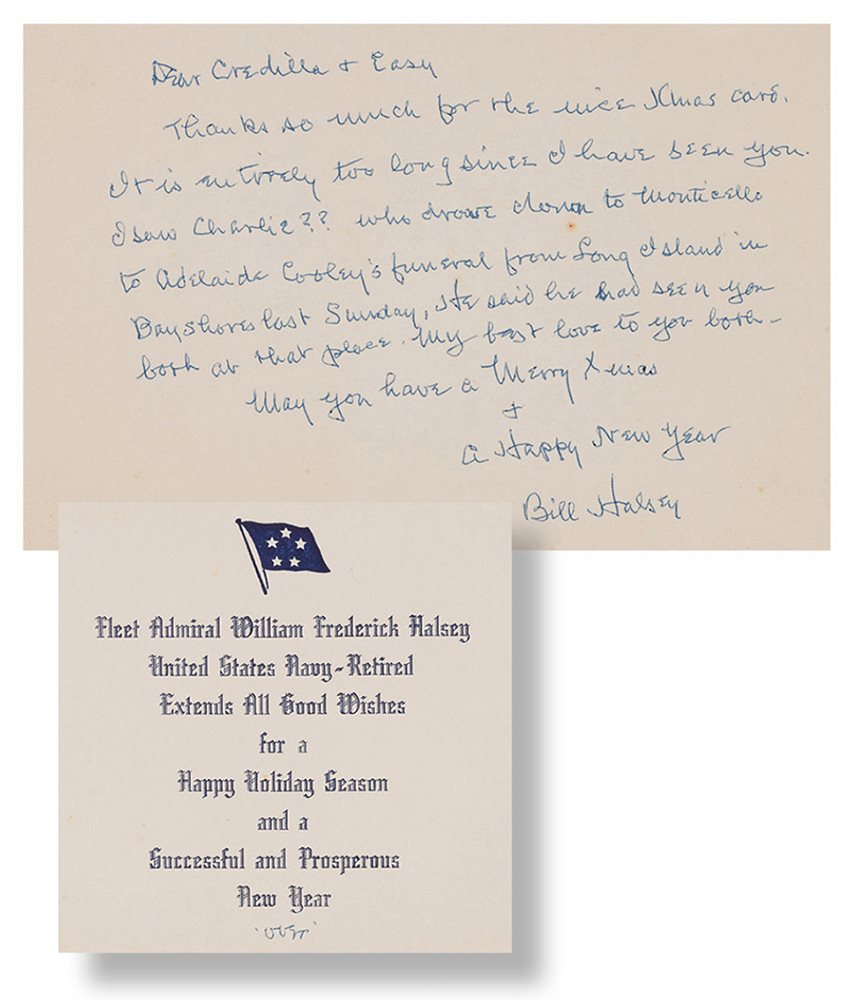 Dear Credilla + Easy
Thanks so much for the nice Xmas card.
It is entirely too long since I have seen you.
I saw Charlie?? who drove down to Monticello
to Adelaide Cooley's funeral from Long Island in
Bayshores last Sunday, He said he had seen you
both at that place. My best love to you both -
May you have a Merry Xmas
+
a Happy New Year
Bill Halsey
Fleet Admiral William Frederick Halsey
United States Navy-Retired
Extends All Good Wishes
for a
Happy Holiday Season
and a
Successful and Prosperous
New Year
'over'